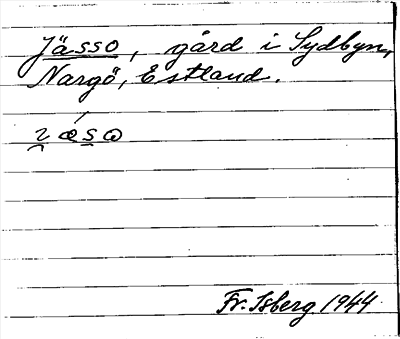 Jässo, gård i Sydbyn,
Nargö, Estland.
Fr. Isberg 1944